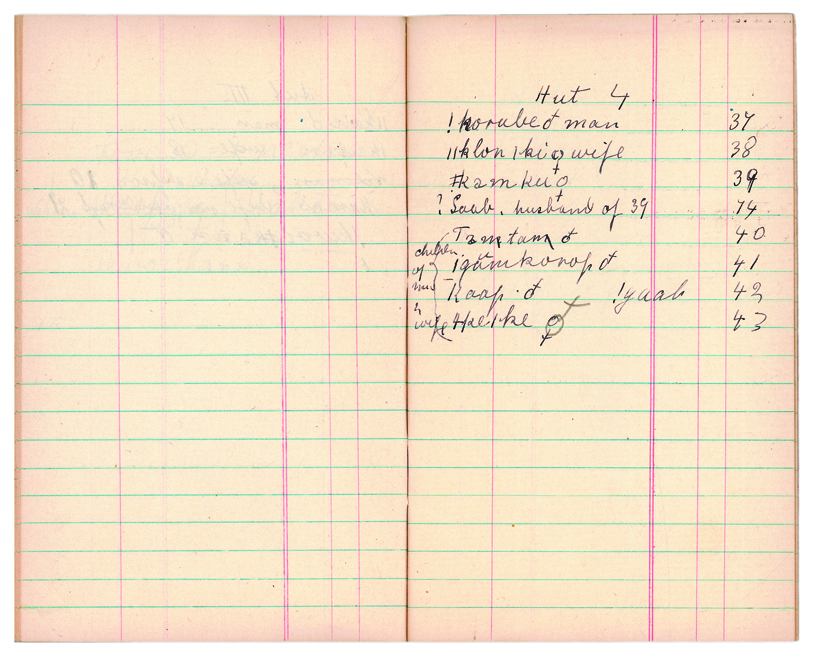 Hut 4
!korabe ♂ man 37
ǁklon ǀki ♀ wife 38
ǂkamku ♀ 39
? Saab. husband of 39 74
Tamtam ♂ 40
♂ 41
Kaap. ♂ !gaab 42
children of man & wife
43